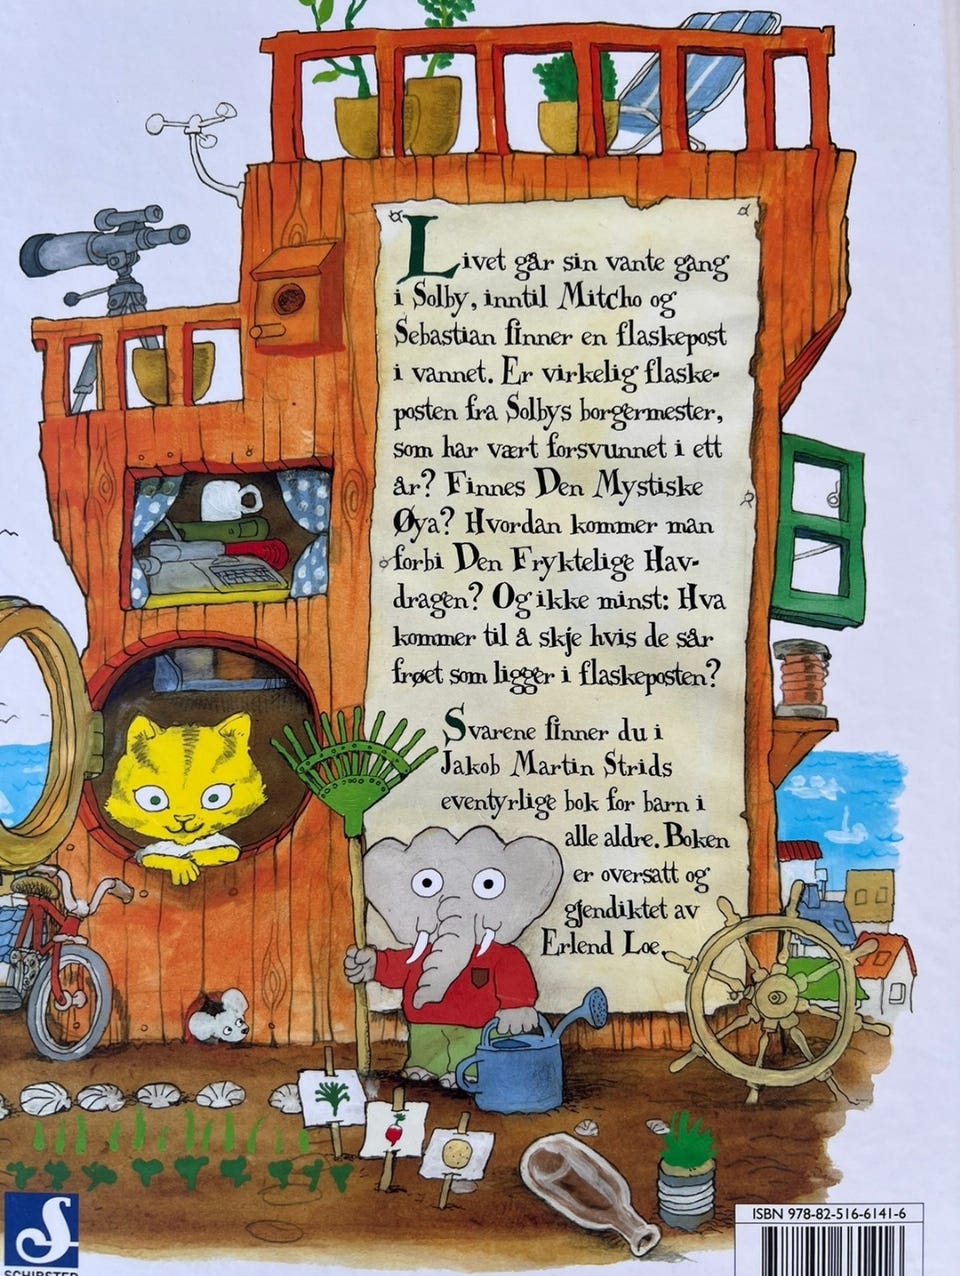 Livet går sin vante gang
i Solby, inntil Mitcho og
Sebastian finner en flaskepost
i vannet. Er virkelig flaske-
posten fra Solbys borgermester,
som har vært forsvunnet i ett
år? Finnes Den Mystiske
Øya? Hvordan kommer man
forbi Den Fryktelige Hav-
dragen? Og ikke minst: Hva
kommer til å skje hvis de sår
frøet som ligger i flaskeposten?
Svarene finner du i
Jakob Martin Strids
eventyrlige bok for barn i
alle aldre. Boken
er oversatt og
gjendiktet av
Erlend Loe.
S
SCHIBSTED
ISBN 978-82-516-6141-6